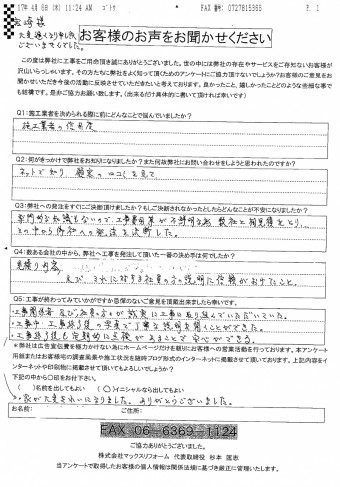 17年 4月 6日(木) 11:24 AM ゴトウ FAX 番号: 0727815355 P. 1
宮崎様
大変遅くなり申し訳
ございませんでした。
お客様のお声をお聞かせください
この度は弊社に工事をご用命頂き誠にありがとうございました。世の中には弊社の存在やサービスをご存知ないお客様が
沢山いらっしゃいます。その方たちに弊社をよく知って頂くためのアンケートにご協力頂けないでしょうか?お客様のご意見をお
聞かせいただき今後の活動に反映させていただきたいと考えております。良かったこと、嬉しかったことどのような些細な事で
も結構です。是非ご協力お願い致します。(出来るだけ具体的に書いて頂ければ幸いです)
Q1:施工業者を決められる際に前にどんなことで悩んでいましたか?
施工業者の信用度
Q2:何がきっかけで弊社をお知りになりましたか?また何故弊社にお問い合わせをしようと思われたのですか?
ネットで知り、顧客の口コミを見て
Q3:弊社への発注をすぐにご決断頂けましたか?もしご決断されなかったとしたらどんなことが不安になりましたか?
専門的な知識もないので、工事費用等が不明瞭な為 数社と相見積をとり、
その中から御社への発注を決断した。
Q4:数ある会社の中から、弊社へ工事を発注して頂いた一番の決め手は何でしたか?
見積り内容
及び、それに対する社員の方の説明に信頼がおけたこと。
Q5:工事が終わってみていかがですか忌憚のないご意見を頂戴出来ましたら幸いです。
・工事関係者及び社員の方々が誠実に工事に取り組んでいただいていた。
・工事中、工事終了後の写真で丁寧な説明を聞くことができた。
・工事終了後も定期的に点検があることで安心ができる。
*弊社は広告宣伝費を極力かけない為にホームページだけを頼りにお客様への営業活動を行っております。本アンケート
用紙またはお客様宅の調査風景や施工状況を随時ブログ形式のインターネットに掲載させて頂いております。上記内容をイ
ンターネットや印刷物に掲載させて頂いてもよろしいでしょうか?
下記の中から○印をお付け下さい。
( )名前を出してもよい (○)イニシャルなら出してもよい
・家が大変きれいになりました。ありがとうございました。
お名前: ご住所:
FAX 06-6369-1124
ご協力ありがとうございました。
株式会社マックスリフォーム 代表取締役 杉本 匡志
当アンケートで取得したお客様の個人情報は関係法規に基づき厳正に管理いたします。